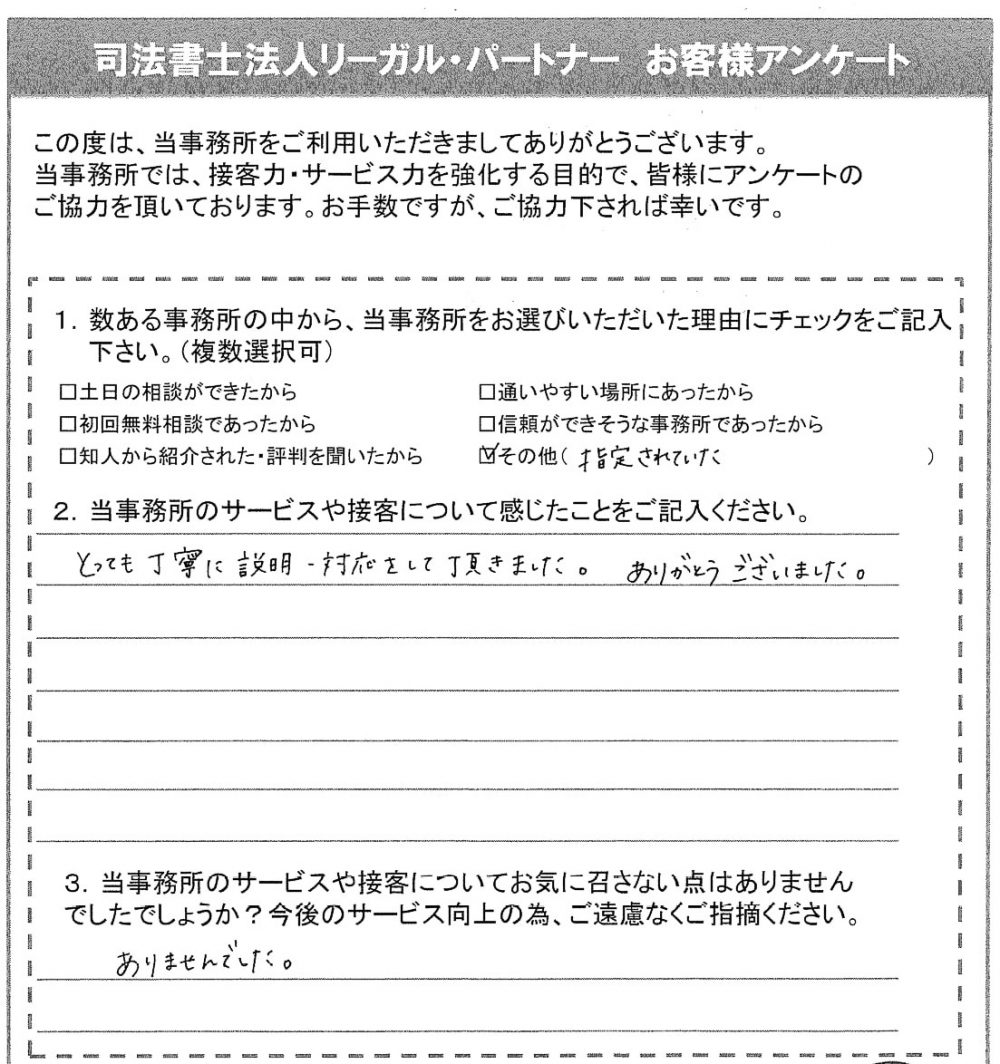 司法書士法人リーガル・パートナー お客様アンケート
この度は、当事務所をご利用いただきましてありがとうございます。
当事務所では、接客力・サービス力を強化する目的で、皆様にアンケートの
ご協力を頂いております。お手数ですが、ご協力下されば幸いです。
1. 数ある事務所の中から、当事務所をお選びいただいた理由にチェックをご記入
下さい。(複数選択可)
□土日の相談ができたから □通いやすい場所にあったから
□初回無料相談であったから □信頼ができそうな事務所であったから
□知人から紹介された・評判を聞いたから ☑その他( 指定されていた )
2. 当事務所のサービスや接客について感じたことをご記入ください。
とっても丁寧に説明・対応をして頂きました。 ありがとうございました。
3. 当事務所のサービスや接客についてお気に召さない点はありません
でしたでしょうか?今後のサービス向上の為、ご遠慮なくご指摘ください。
ありませんでした。